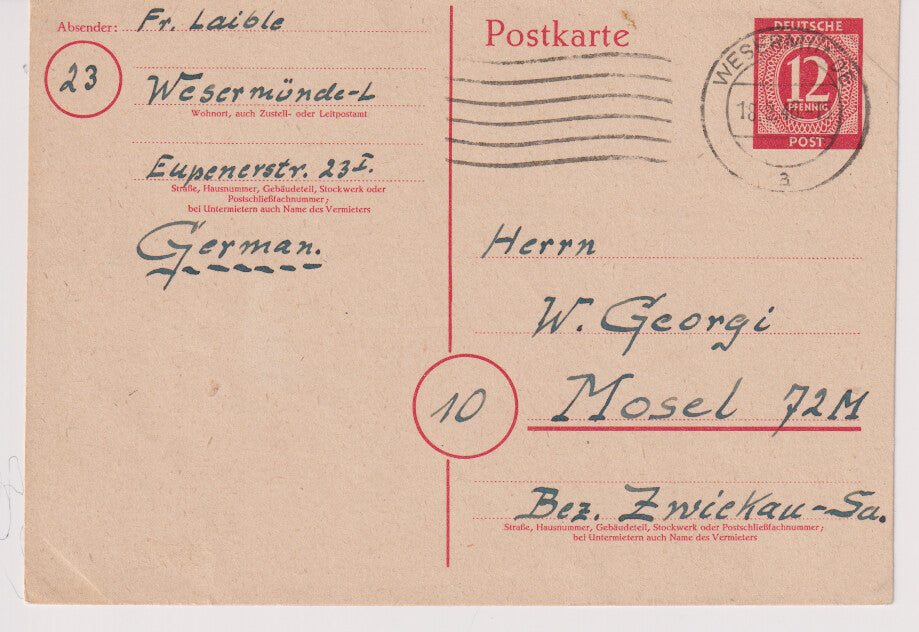 Absender: Fr. Laible
23
Wesermünde-L
Wohnort, auch Zustell- oder Leitpostamt
Eupenerstr. 23 I.
Straße, Hausnummer, Gebäudeteil, Stockwerk oder
Postschließfachnummer;
bei Untermietern auch Name des Vermieters
German.
Postkarte
DEUTSCHE
12
PFENNIG
POST
WESERMÜNDE
a
Herrn
W. Georgi
10
Mosel 72M
Bez. Zwickau-Sa.
Straße, Hausnummer, Gebäudeteil, Stockwerk oder Postschließfachnummer;
bei Untermietern auch Name des Vermieters